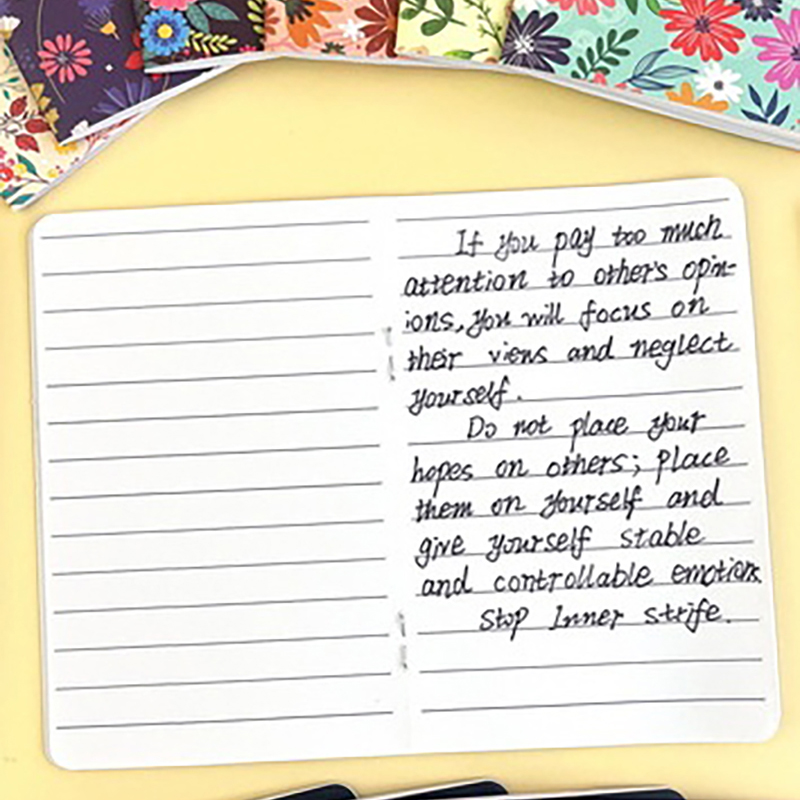 If you pay too much
attention to other's opin-
ions, you will focus on
their views and neglect
yourself.
Do not place your
hopes on others; place
them on yourself and
give yourself stable
and controllable emotions.
Stop Inner strife.